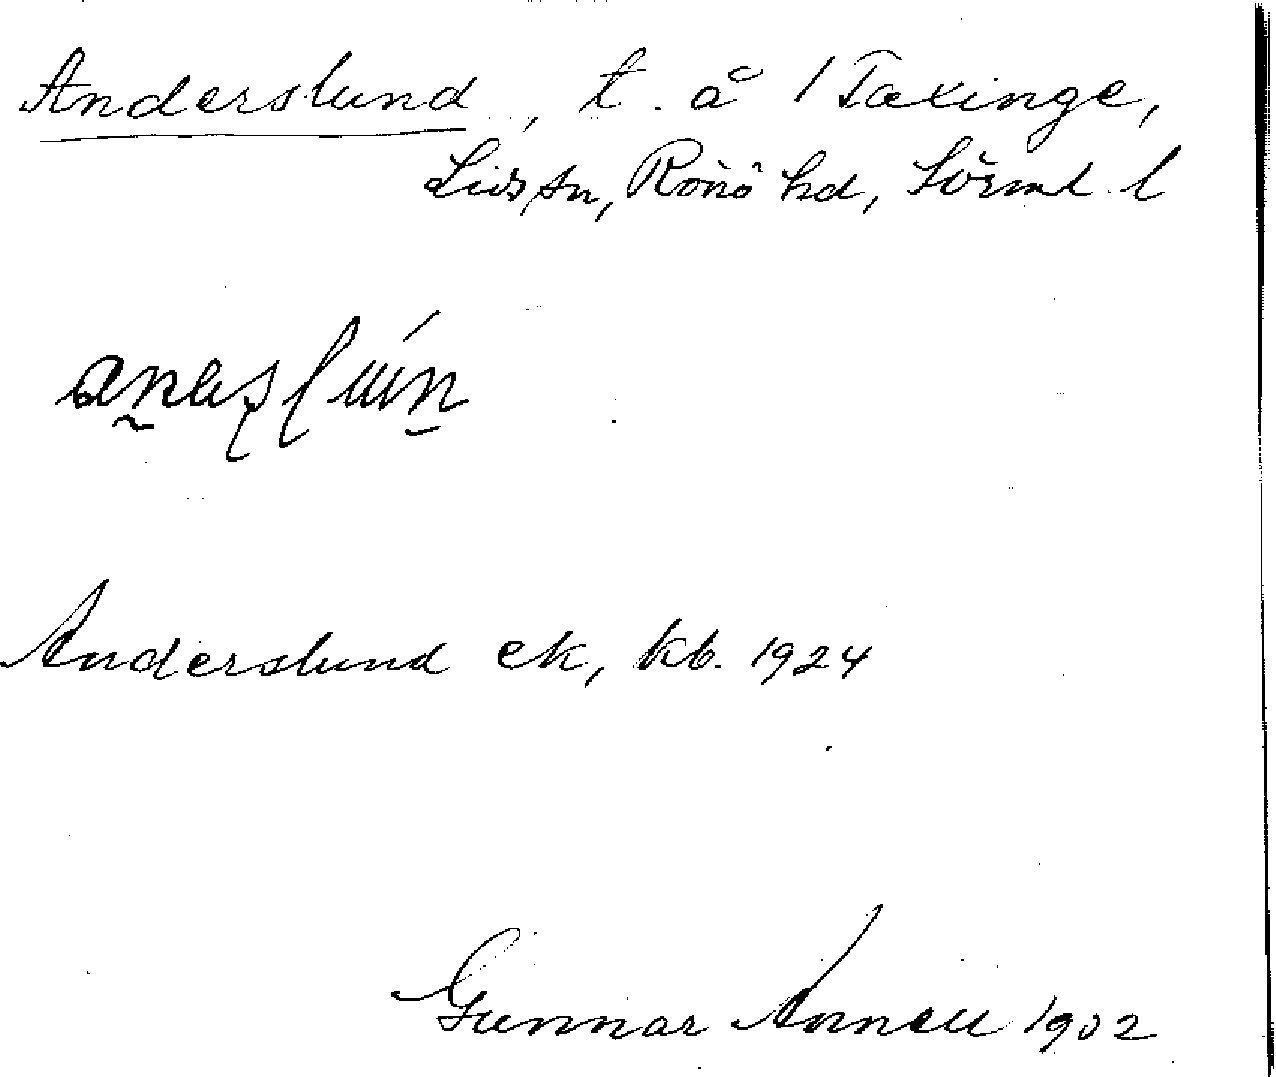 Anderslund, t. å 1 Taxinge,
Lids sn, Rönö hd, Sörml. l
Anderslund ek, kb. 1924
Gunnar Annell 1932